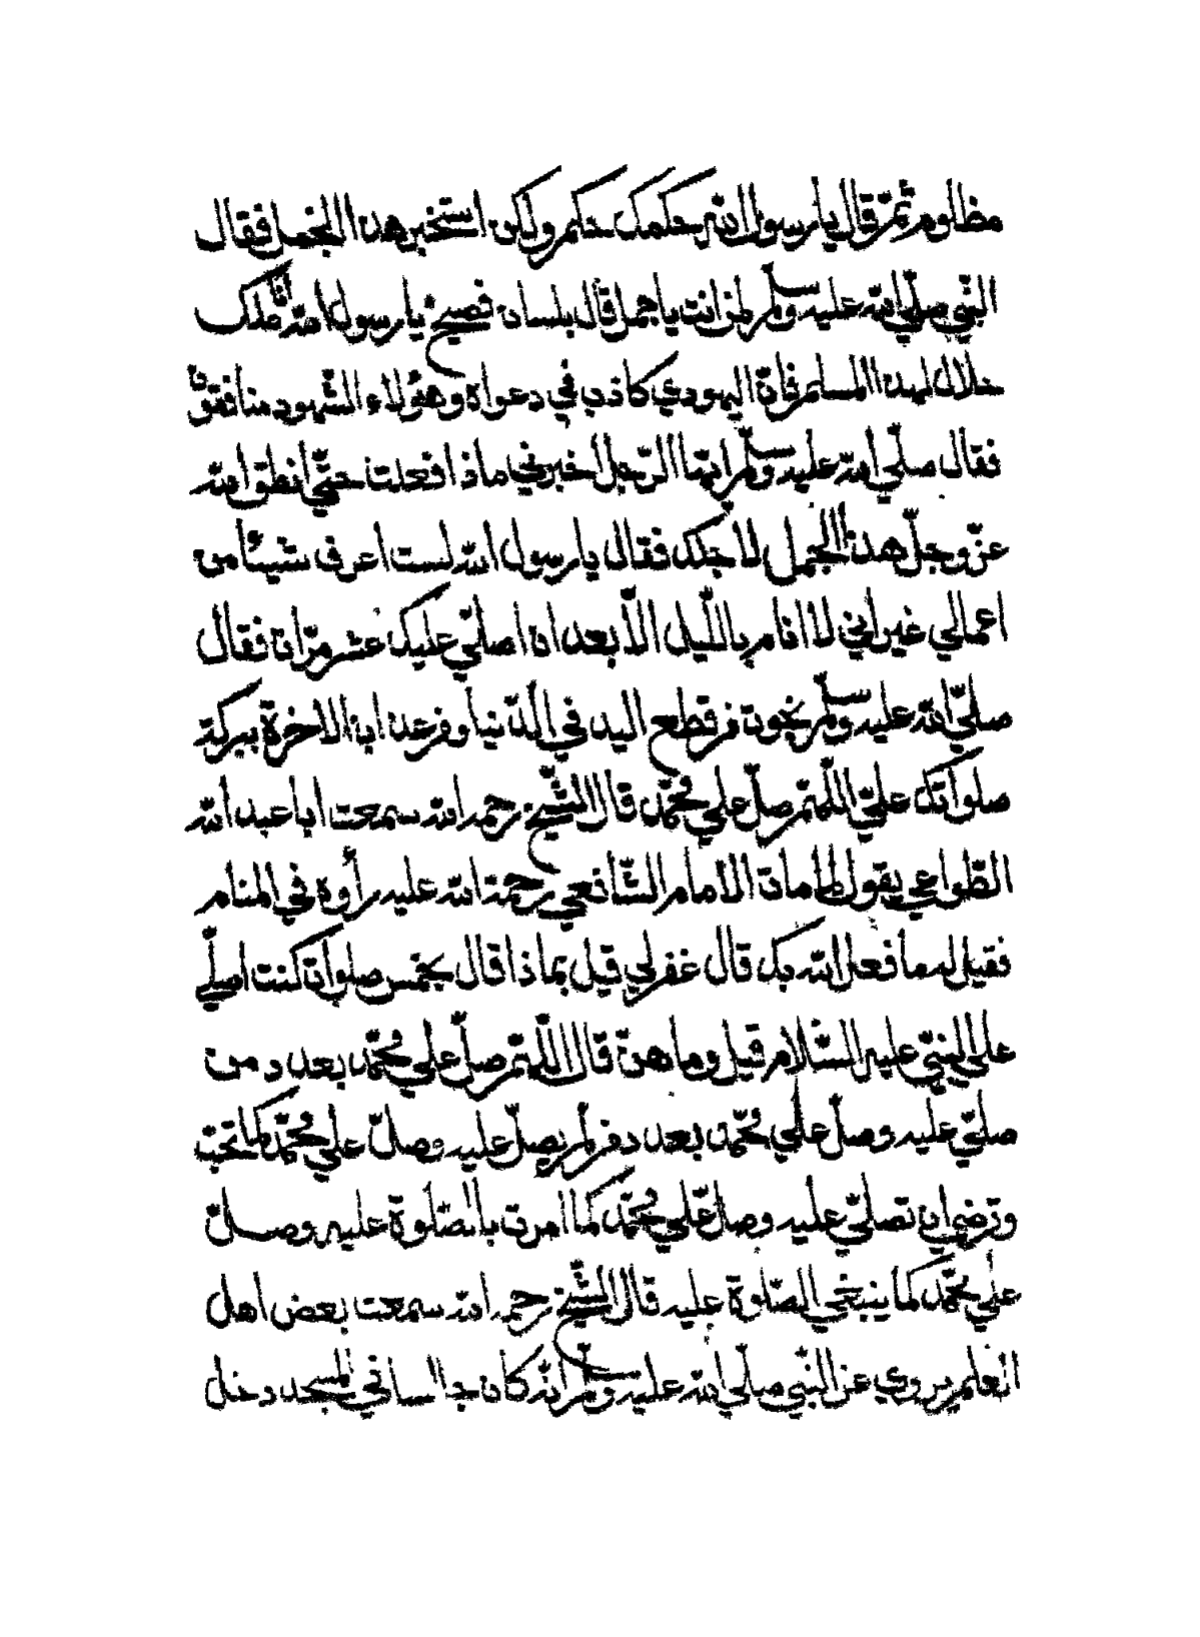 مظلوم ثمّ قال يا رسول الله حكمك حكم ولكن استخبر هذا الجمل فقال
النّبي صلّي الله عليه وسلّم لمن انت يا جمل قال بلسان فصيح يا رسول الله ملك
حلال لهذا المسلم فانّ اليهودي كاذب في دعواه وهؤلاء الشّهود منافقون
فقال صلّي الله عليه وسلّم ايّها الرّجل اخبرني ماذا فعلت حتّي انطق الله
عزّ وجلّ هذا الجمل لاجلك فقال يا رسول الله لست اعرف شيئا من
اعمالي غير اني لا انام باللّيل الّا بعد ان اصلّي عليك عشر مرّات فقال
صلّي الله عليه وسلّم نجوت من قطع اليد في الدّنيا ومن عذاب الاخرة ببركة
صلوأتك عليّ اللّهمّ صلّ علي محمّد قال الشّيخ رحمه الله سمعت ابا عبد الله
الطّواعي يقول لما مات الامام الشّافعي رحمة الله عليه رأوه في المنام
فقيل له ما فعل الله بك قال غفر لي قيل بماذا قال بخمس صلوات كنت اصلّي
علي النّبيّ عليه السّلام قيل وما هنّ قال اللّهمّ صلّ علي محمّد بعدد من
صلّي عليه وصلّ علي محمّد بعدد من لم يصلّ عليه وصلّ علي محمّد كما تحبّ
وترضي ان تصلّي عليه وصلّ علي محمّد كما امرت بالصّلوة عليه وصلّ
علي محمّد كما ينبغي الصّلوة عليه قال الشّيخ رحمه الله سمعت بعض اهل
العلم يروي عن النّبي صلّي الله عليه وسلّم انّه كان جالسا في المسجد دخل